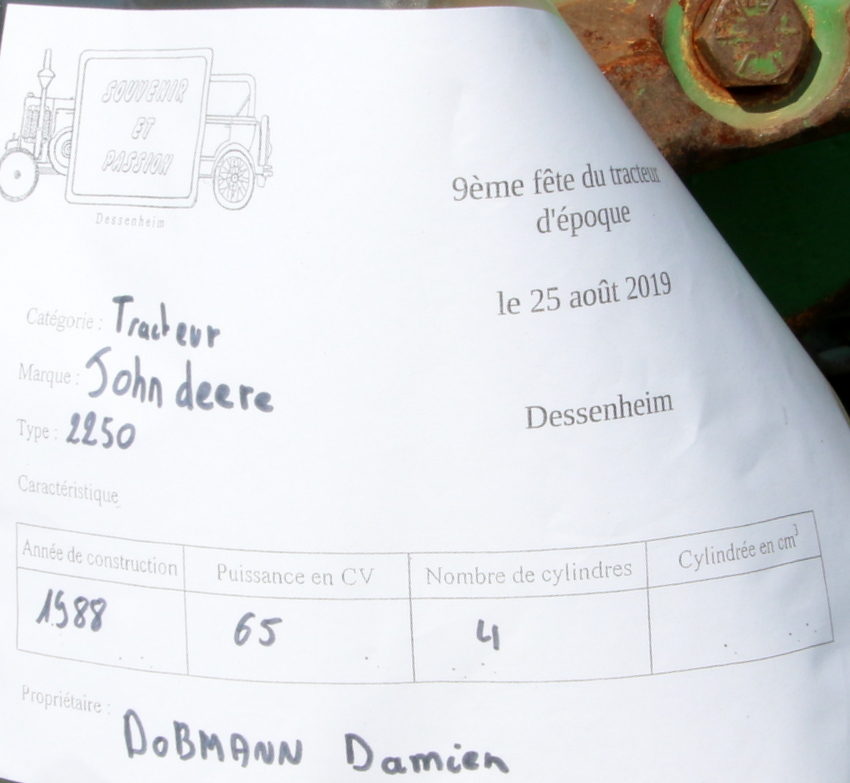 SOUVENIR
ET
PASSION
Dessenheim
9ème fête du tracteur
d'époque
le 25 août 2019
Dessenheim
Catégorie : Tracteur
Marque : John deere
Type : 2250
Caractéristique
Année de construction Puissance en CV Nombre de cylindres Cylindrée en cm³
1988 65 4
Propriétaire : DoBMANN Damien